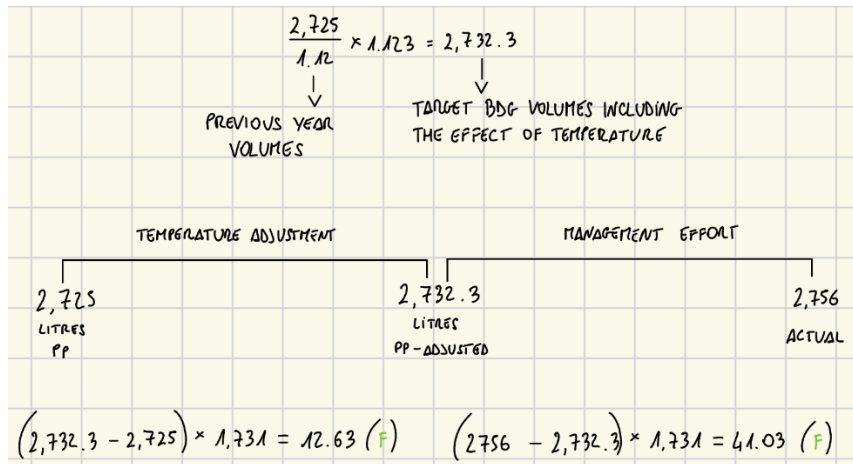 2,725
1.12 × 1.123 = 2,732.3
PREVIOUS YEAR
VOLUMES
TARGET BDG VOLUMES INCLUDING
THE EFFECT OF TEMPERATURE
TEMPERATURE ADJUSTMENT
MANAGEMENT EFFORT
2,725
LITRES
PP
2,732.3
LITRES
PP-ADJUSTED
2,756
ACTUAL
(2,732.3 - 2,725) × 1,731 = 12.63 (F)
(2756 - 2,732.3) × 1,731 = 41.03 (F)